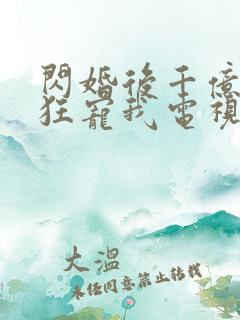 閃婚後千億
狂寵我電視
大溫
未經同意禁止轉載